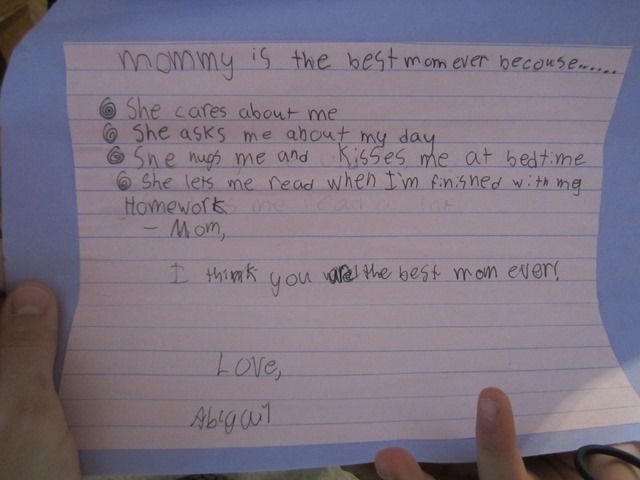 mommy is the best mom ever becouse......
She cares about me
She asks me about my day
She hugs me and kisses me at bedtime
She lets me read when I'm finished with my
Homework
- Mom,
I think you are the best mom ever!
Love,
Abigail